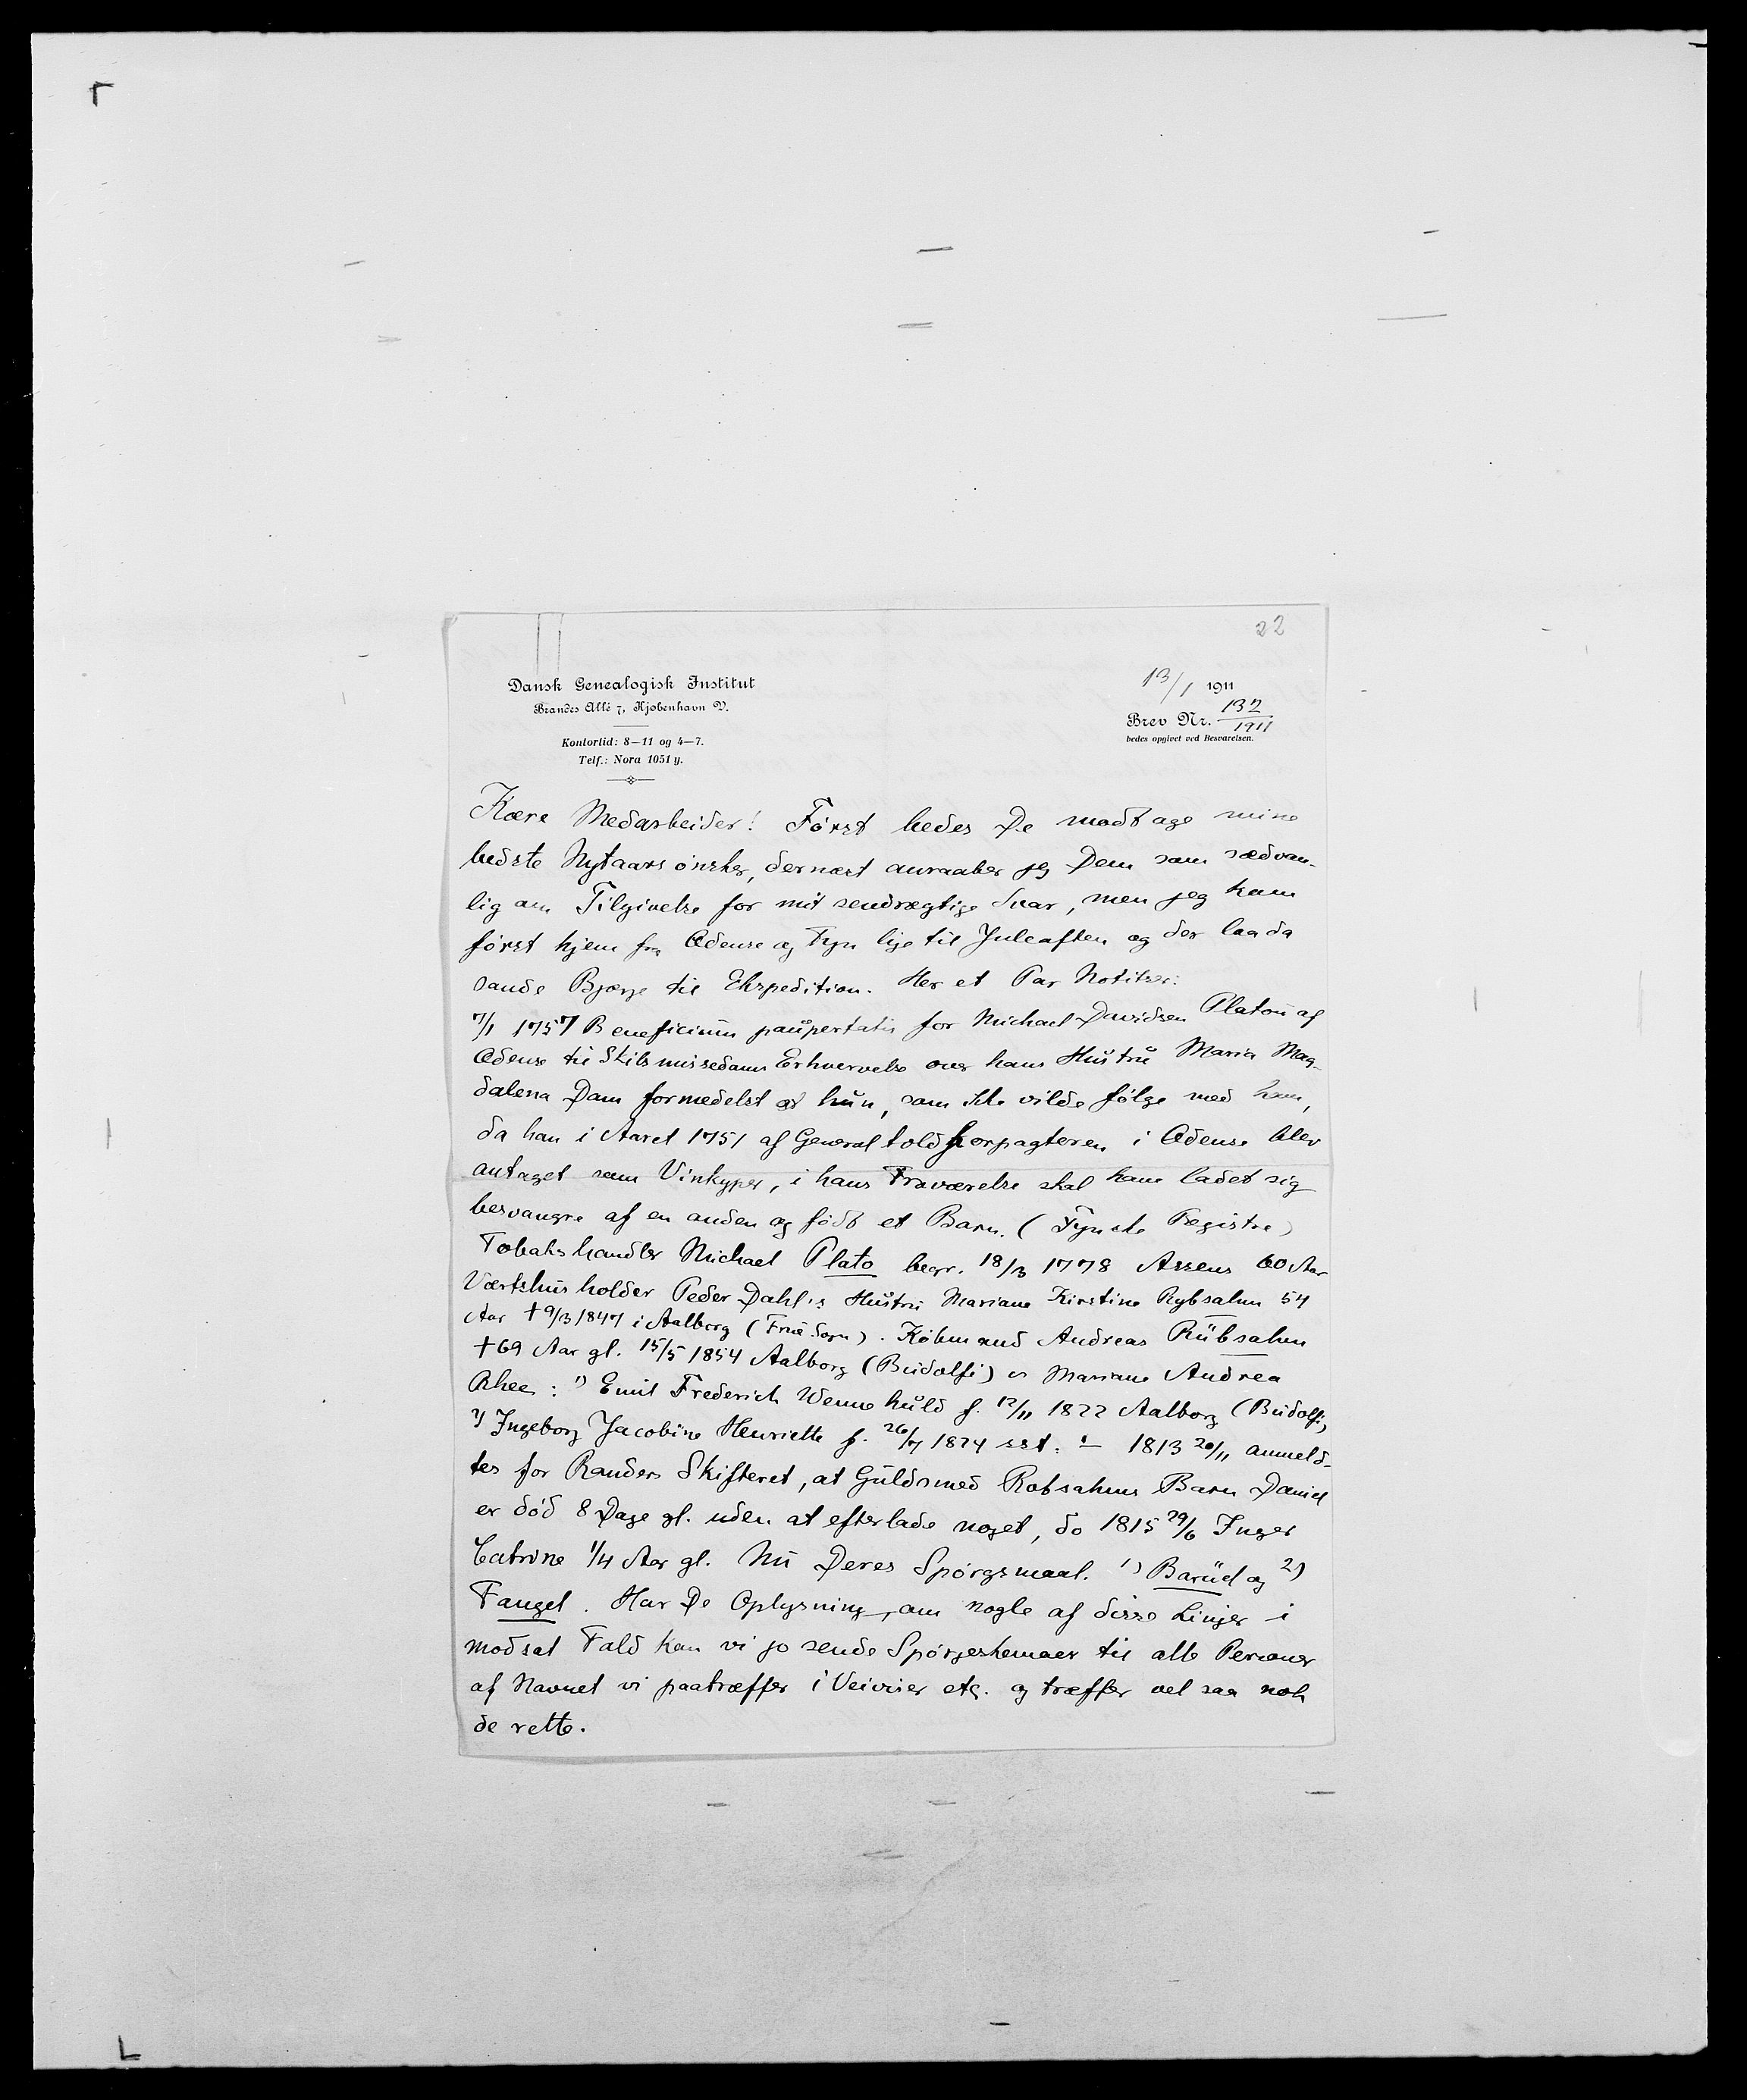 22
Dansk Genealogisk Institut
Brandes Allé 7, Kjøbenhavn V.
Kontortid: 8—11 og 4—7.
Telf.: Nora 1051 y.
13/1 1911
Brev Nr. 132/1911
bedes opgivet ved Besvarelsen.
Kære Medarbeider! Først bedes De modtage mine
bedste Nytaarsønsker, dernæst anraaber jeg Dem som sædvan-
lig om Tilgivelse for mit sendrægtige Svar, men jeg kom
først hjem fra Odense og Fyn lige til Juleaften og der laa da
sande Bjærge til Ekspedition. Her et Par Notitser:
7/1 1757 Beneficium paupertatis for Michael Davidsen Platou af
Odense til Skilsmissedoms Erhvervelse over hans Hustru Maria Mag-
dalena Dam formedelst at hun, som ikke vilde følge med ham,
da han i Aaret 1751 af Generaltoldforpagteren i Odense blev
antaget som Vinkyper, i hans Fraværelse skal have ladet sig
besvangre af en anden og født et Barn. (Fynske Registre)
Tobakshandler Michael Plato begr. 18/3 1778 Assens 60 Aar
Værtshusholder Peder Dahl's Hustru Mariane Kirstine Rybsahm 54
Aar † 9/3 1847 i Aalborg (Frue Sogn). Købmand Andreas Rübsahm
† 69 Aar gl. 15/5 1854 Aalborg (Budolfi) Mariane Andrea
Rhee: 1) Emil Frederich Wennehuld f. 12/11 1822 Aalborg (Budolfi,
2) Ingeborg Jacobine Henriette f. 26/7 1824 sst. — 1813 20/11 anmeld-
tes for Randers Skifteret, at Guldsmed Robsahms Barn Daniel
er død 8 Dage gl. uden at efterlade noget, do 1815 29/6 Inger
Catrine 1/4 Aar gl. Nu Deres Spørgsmaal. 1) Baruel og 2)
Fangel. Har De Oplysning, om nogle af disse Linjer i
modsat Fald kan vi jo sende Spørgeskemaer til alle Personer
af Navnet vi paatræffer i Veiviser etc. og træffer vel saa nok
de rette.